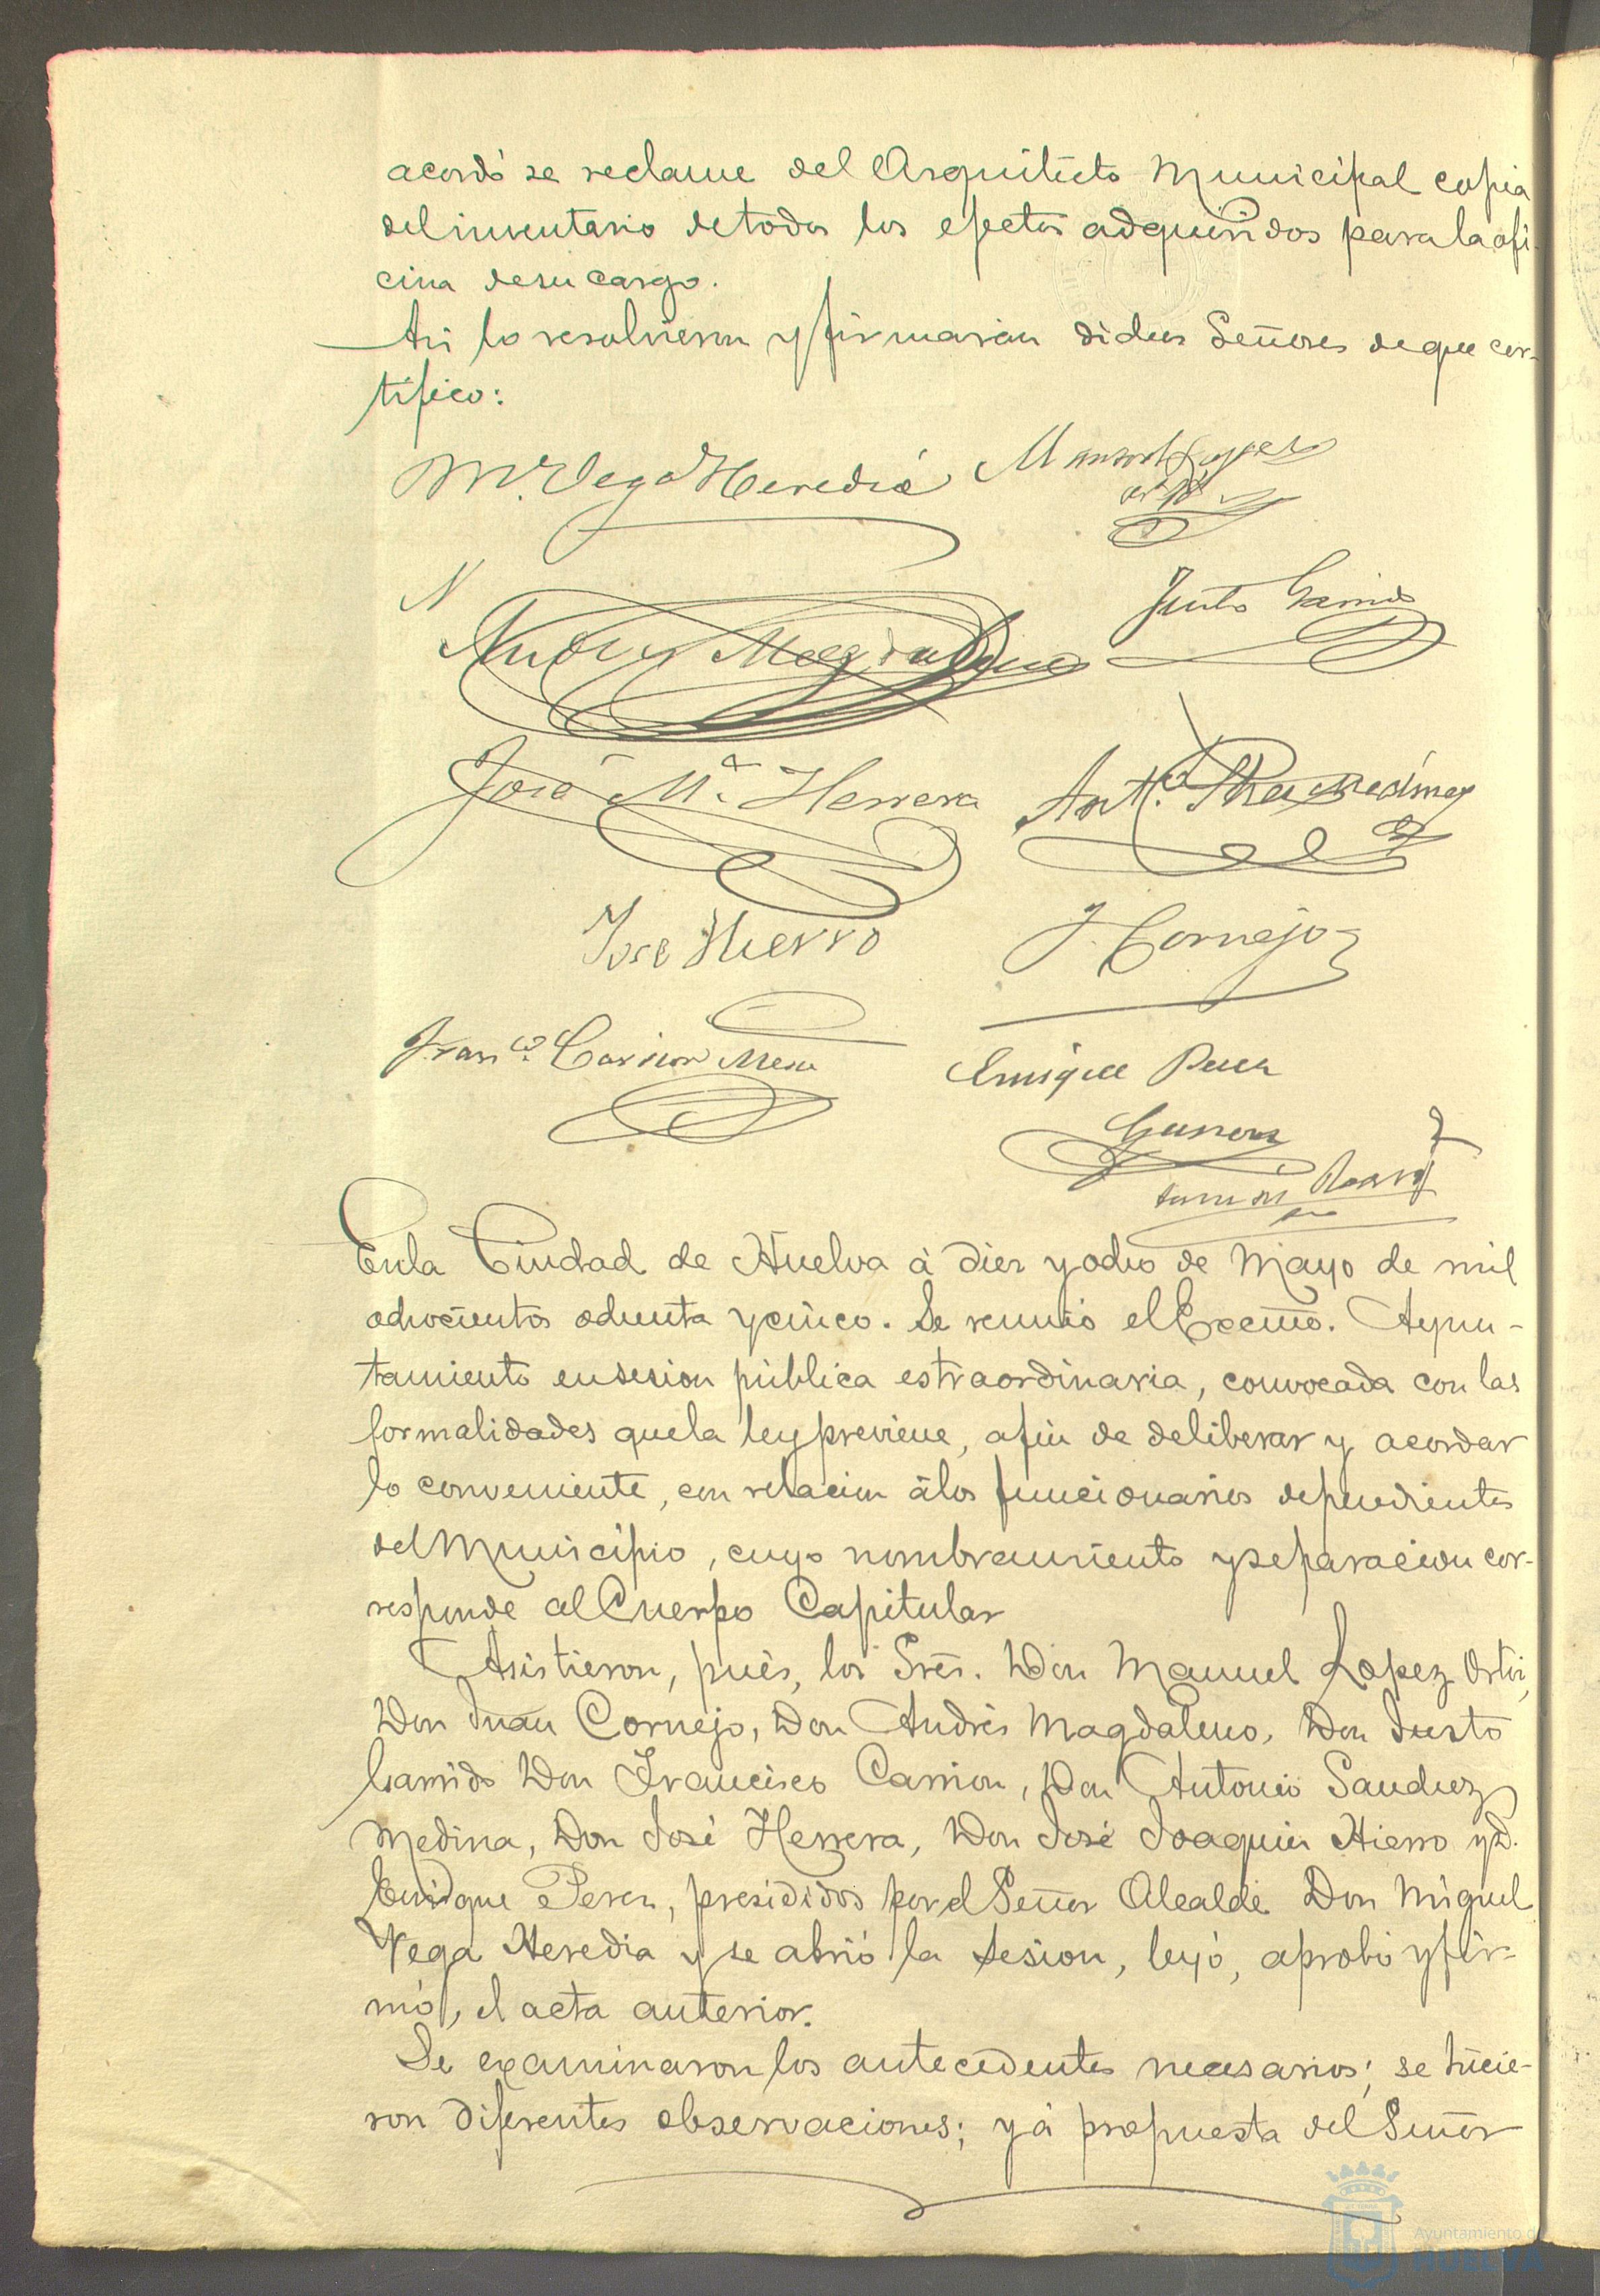 acordó se reclame del Arquitecto Municipal copia
del inventario de todos los efectos adquiridos para la ofi-
cina de su cargo.
Asi lo resolvieron y firmarán dichos Señores de que cer-
tifico:
M. Vega Heredia Manuel Lopez
Ortiz
Andres Magdaleno Justo Garrido
José Mª Herrera Antº. Sanchez Medina
José Hierro J. Cornejo
Franco. Carrion Mena Enrique Perez
Guerrero
En la Ciudad de Huelva á diez y ocho de Mayo de mil
ochocientos ochenta y cinco. Se reunió el Excmo. Ayun-
tamiento en sesion pública estraordinaria, convocada con las
formalidades que la ley previene, afin de deliberar y acordar
lo conveniente, con relacion á los funcionarios dependientes
del Municipio, cuyo nombramiento y separacion cor-
responde al Cuerpo Capitular
Asistieron, pués, los Sres. Don Manuel Lopez Ortiz,
Don Juan Cornejo, Don Andrés Magdaleno, Don Justo
Garrido Don Francisco Carrion, Don Antonio Sanchez
Medina, Don José Herrera, Don José Joaquin Hierro y D.
Enrique Perez, presididos por el Señor Alcalde Don Miguel
Vega Heredia y se abrió la sesion, leyó, aprobó y fir-
mó, el acta anterior.
Se examinaron los antecedentes necesarios; se hicie-
ron diferentes observaciones; y á propuesta del Señor
Ayuntamiento de
HUELVA